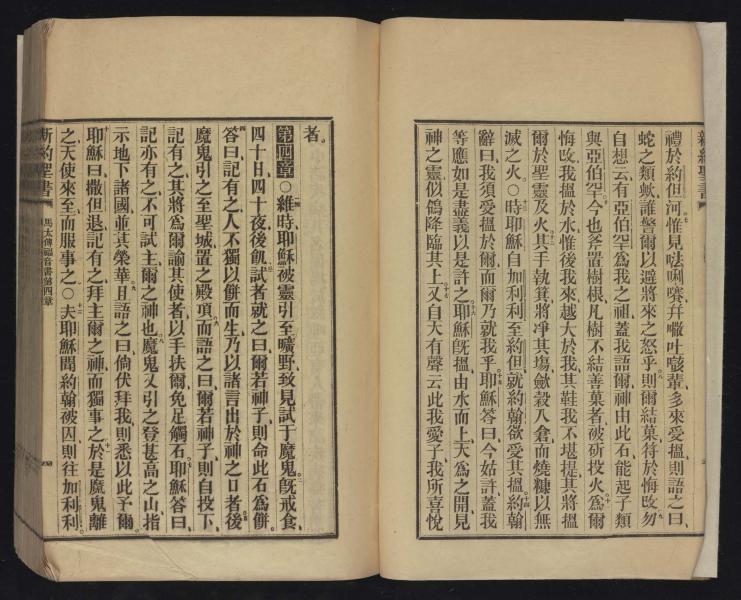 禮於約但河惟見唏唎嚽幷㘔吐㗔輩多來愛搵則語之曰
蛇之類歟誰警爾以避將來之怒乎則爾結菓符於悔改勿
自想云有亞伯罕爲我之祖蓋我語爾神由此石能起子類
與亞伯罕今也斧置樹根凡樹不結善菓者被斫投火爲爾
悔改我搵於水惟後我來越大於我其鞋我不堪提其將搵
爾於聖靈及火其手執箕將凈其塲歛穀入倉而燒糠以無
滅之火○時耶穌自加利利至約但就約翰欲受其搵約翰
辭曰我須受搵於爾而爾乃就我乎耶穌答曰今姑許蓋我
等應如是盡義以是許之耶穌旣搵由水而上天爲之開見
神之靈似鴿降臨其上又自天有聲云此我愛子我所喜悅
者
第四章○維時耶穌被靈引至曠野致見試于魔鬼旣戒食
四十日四十夜後飢試者就之曰爾若神子則命此石爲餠
答曰記有之人不獨以餠而生乃以諸言出於神之口者後
魔鬼引之至聖城置之殿項而語之曰爾若神子則自投下
記有之其將爲爾諭其使者以手扶爾免足觸石耶穌答曰
記亦有之不可試主爾之神也魔鬼又引之登甚高之山指
示地下諸國並其榮華且語之曰倘伏拜我則悉以此予爾
耶穌曰撒但退記有之拜主爾之神而獨事之於是魔鬼離
之天使來至而服事之○夫耶穌聞約翰被囚則往加利利
新約聖書 馬太傳福音書第四章